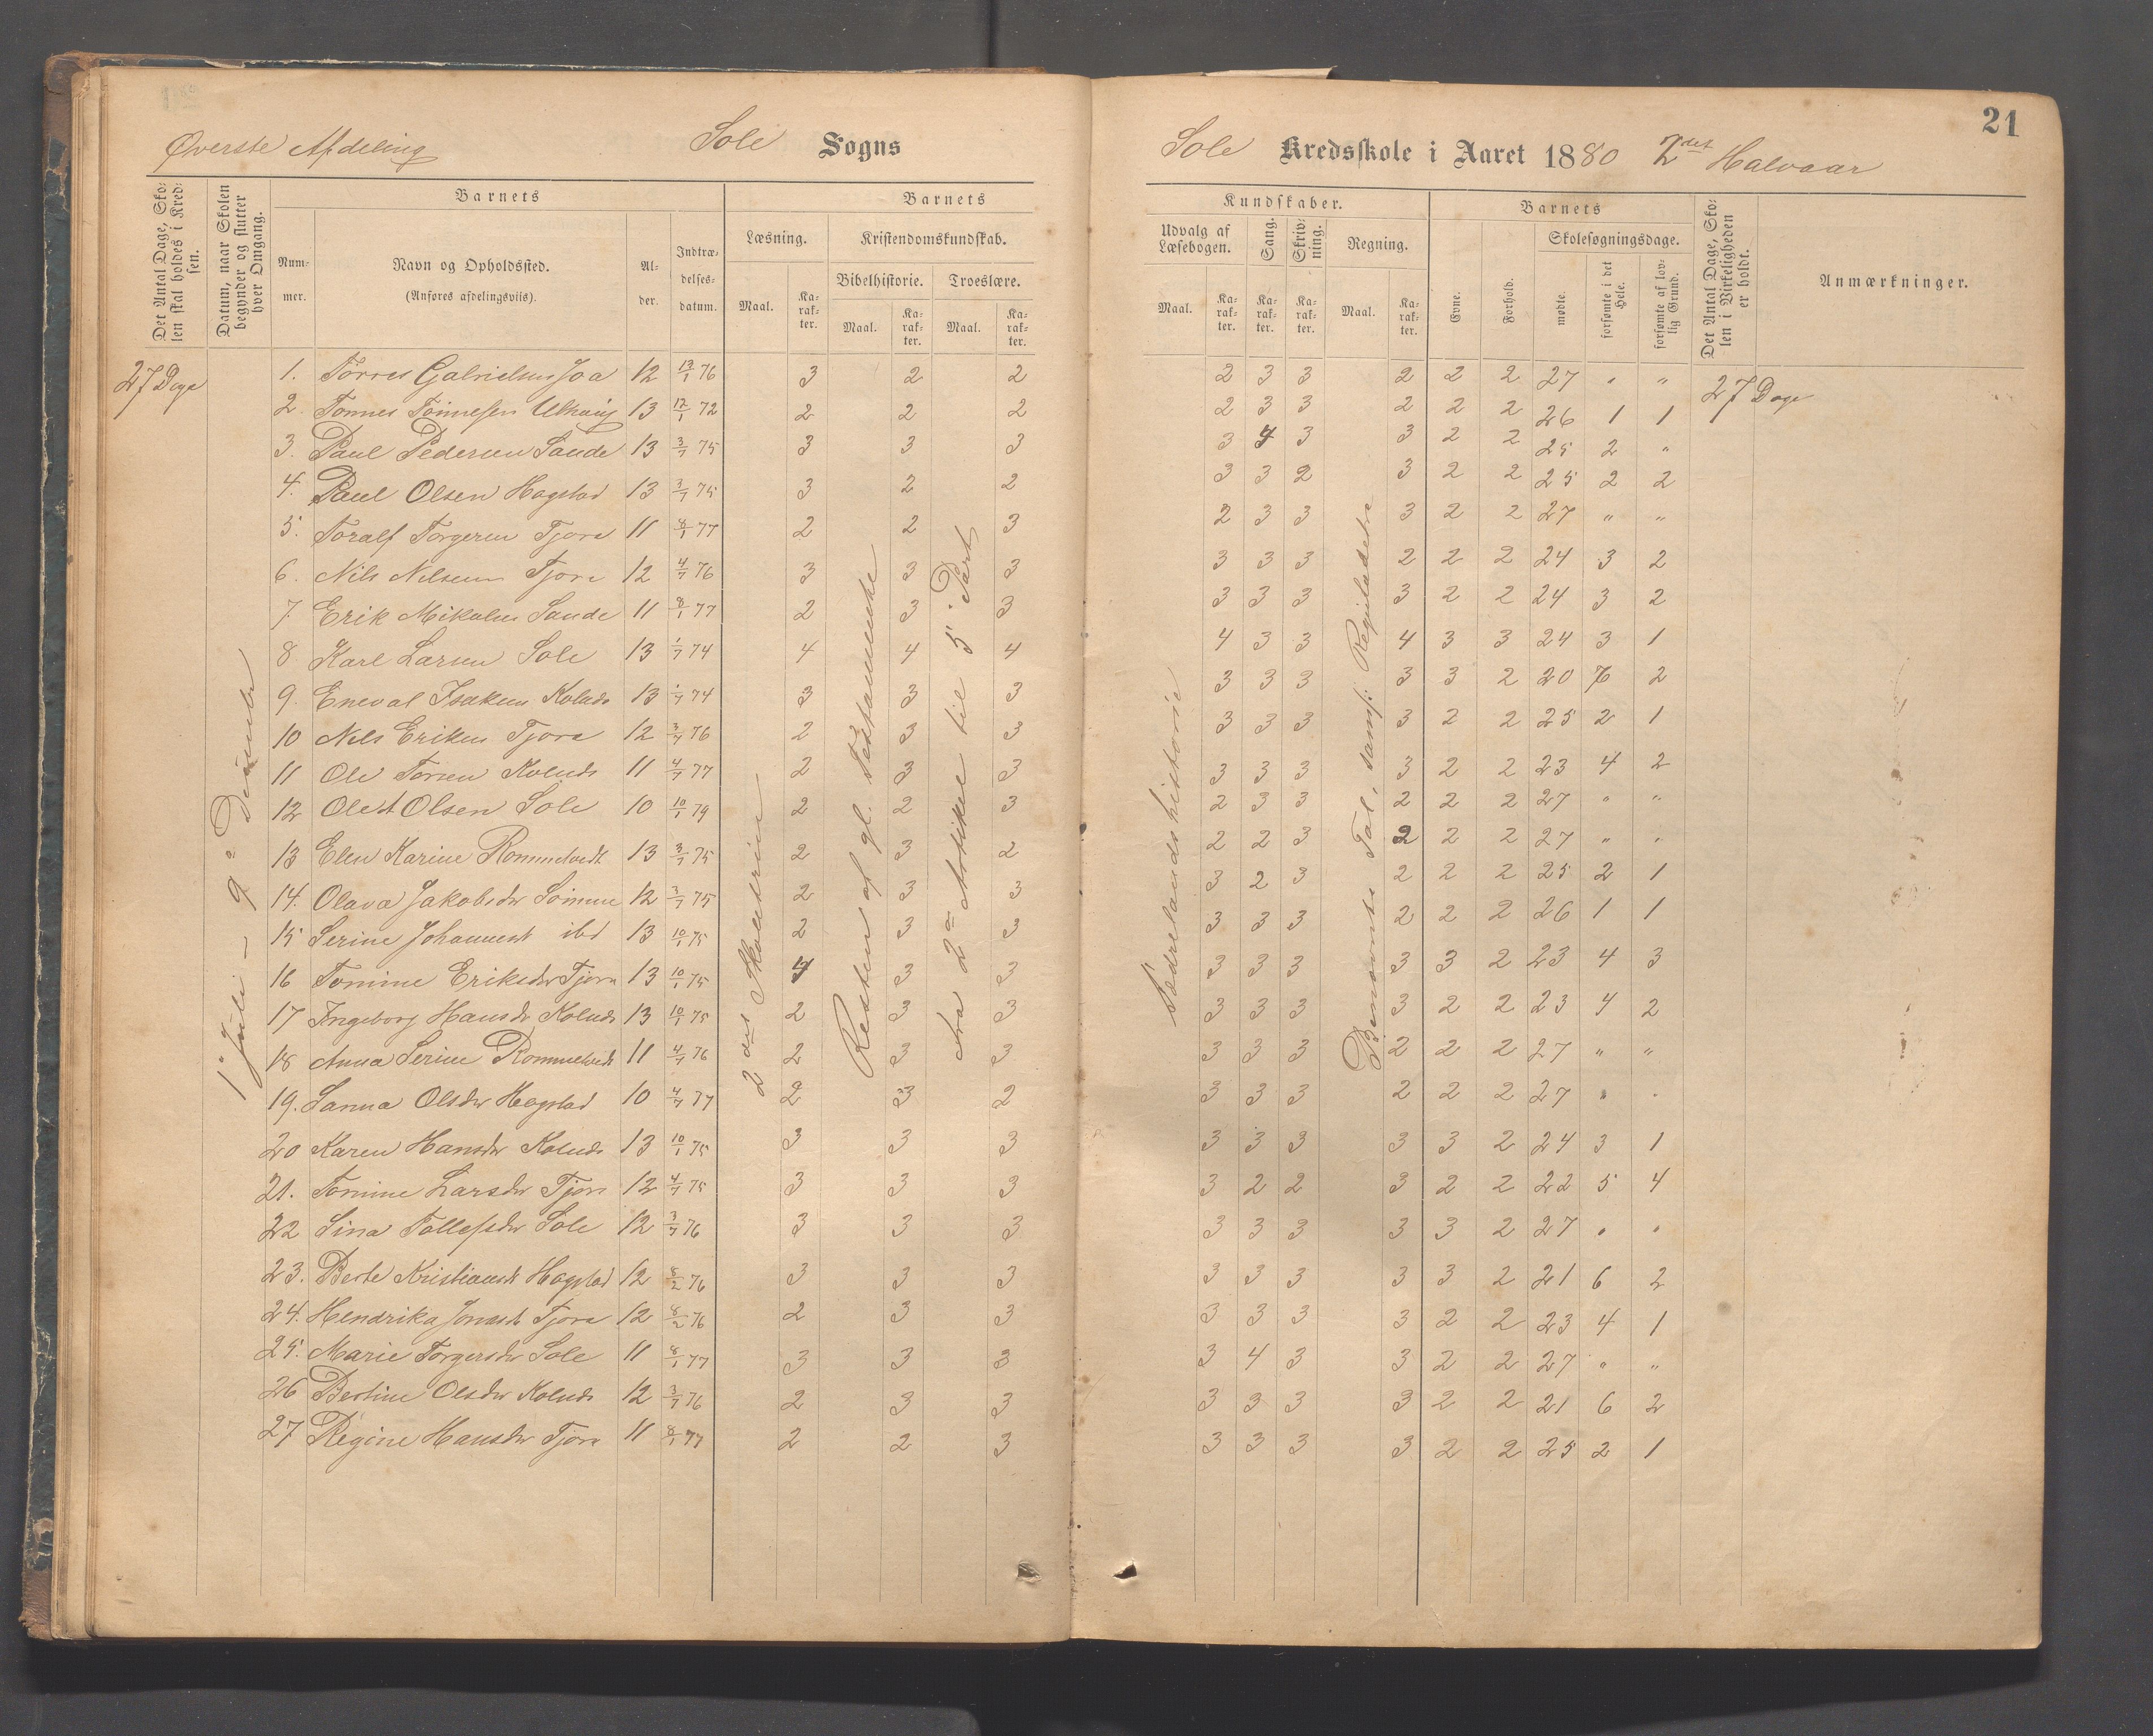 21
Øverste Afdeling Sole Sogns
Sole Kredsskole i Aaret 1880 2det Halvaar
Det Antal Dage, Skolen skal holdes i Kredsen.
Datum, naar Skolen begynder og slutter hver Omgang.
Barnets
Nummer.
Navn og Opholdssted.
(Anføres afdelingsviis).
Alder.
Indtrædelsesdatum.
Barnets
Læsning.
Maal.
Karakter.
Kristendomskundskab.
Bibelhistorie.
Maal.
Karakter.
Troeslære.
Maal.
Karakter.
Kundskaber.
Udvalg af Læsebogen.
Maal.
Karakter.
Sang.
Karakter.
Skrivning.
Karakter.
Regning.
Maal.
Karakter.
Barnets
Evne.
Forhold.
Skolesøgningsdage.
mødte.
forsømte i det Hele.
forsømte af lovlig Grund.
Det Antal Dage, Skolen i Virkeligheden er holdt.
Anmærkninger.
27 Dage
1. Torres Gabrielsen Joa 12 13/1 76 3 2 2 2 3 3 2 2 2 27 " " 27 Dage
2. Tonnes Tonnesen 13 12/1 72 2 2 2 2 3 3 2 2 2 26 1 1
3. Paul Pedersen Sande 13 3/7 75 3 3 3 3 4 3 3 2 2 25 2 "
4. Paul Olsen Hogstad 13 3/7 75 3 2 2 3 3 2 3 2 2 25 2 2
5. Toralf Torgersen Tjora 11 8/1 77 2 2 3 2 3 3 3 2 2 27 " "
6. Nils Nilsen Tjora 12 4/7 76 3 3 3 3 3 3 2 2 2 24 3 2
7. Erik Mikalsen Sande 11 8/1 77 2 3 3 3 3 3 3 2 2 24 3 2
8 Karl Larsen Sole 13 1/7 74 4 4 4 4 3 3 4 3 3 24 3 1
9. Eneval Isaksen Kolnds 13 1/7 74 3 3 3 3 3 3 3 3 2 20 7 2
10 Nils Eriksen Tjora 12 3/7 76 2 3 3 3 3 3 3 2 2 25 2 1
11 Ole Torsen Kolnds 11 4/7 77 2 3 3 3 3 3 3 2 2 23 4 2
12 Ole A Olsen Sole 10 10/1 79 2 2 3 2 3 3 2 2 2 27 " "
13 Elen Karine Rommetvedt 13 3/7 75 2 3 2 2 2 3 2 2 2 27 " "
14. Olava Jakobsdr Sømme 12 3/7 75 2 3 3 3 2 3 2 2 2 25 2 1
15 Serine Johannesd ibd 13 10/1 75 2 3 3 3 3 3 2 2 2 26 1 1
16 Tomine Eriksdr Tjora 13 10/1 75 4 3 3 3 3 3 3 3 2 23 4 3
17 Ingeborg Hansdr Kolnds 13 10/1 75 2 3 3 3 3 3 3 2 2 23 4 2
18 Anna Serine Rommetvedt 11 4/7 76 2 3 3 3 3 3 2 2 2 27 " "
19. Sanna Olsdr Hogstad 10 4/7 77 2 3 2 3 3 3 2 2 2 27 " "
20 Karen Hansdr Kolnds 13 10/1 75 3 3 3 3 3 3 3 3 2 24 3 1
21. Tomine Larsdr Tjora 12 4/7 75 3 3 3 3 2 2 3 2 2 22 5 4
22 Sina Tollefsdr Sole 12 3/7 76 3 3 3 3 3 3 3 3 2 27 " "
23. Berte Kristiansdr Hogstad 12 8/2 76 3 3 3 3 3 3 3 3 2 21 6 2
24. Hendrika Jonasd Tjora 12 8/2 76 2 3 3 3 3 3 3 2 2 23 4 1
25. Marie Torgersdr Sole 11 8/1 77 3 3 3 3 4 3 3 2 2 27 " "
26 Bertine Olsdr Kolnds 12 3/7 76 2 3 3 3 3 3 3 2 2 21 6 2
27 Regine Hansdr Tjora 11 8/1 77 2 2 3 3 3 3 3 2 2 25 2 1
1ste Juli – 9de Desember
2det Skoletrin
Resten af gl. Testamente
fra 2den Artikel til 5te Part
Fædrelandshistorie
Benævnte Tal, saml: Reguladetri